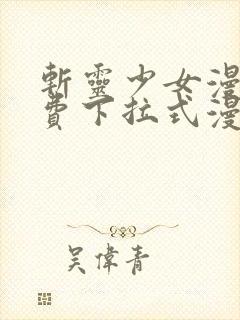 斬靈少女漫
費下拉式漫
吳偉青